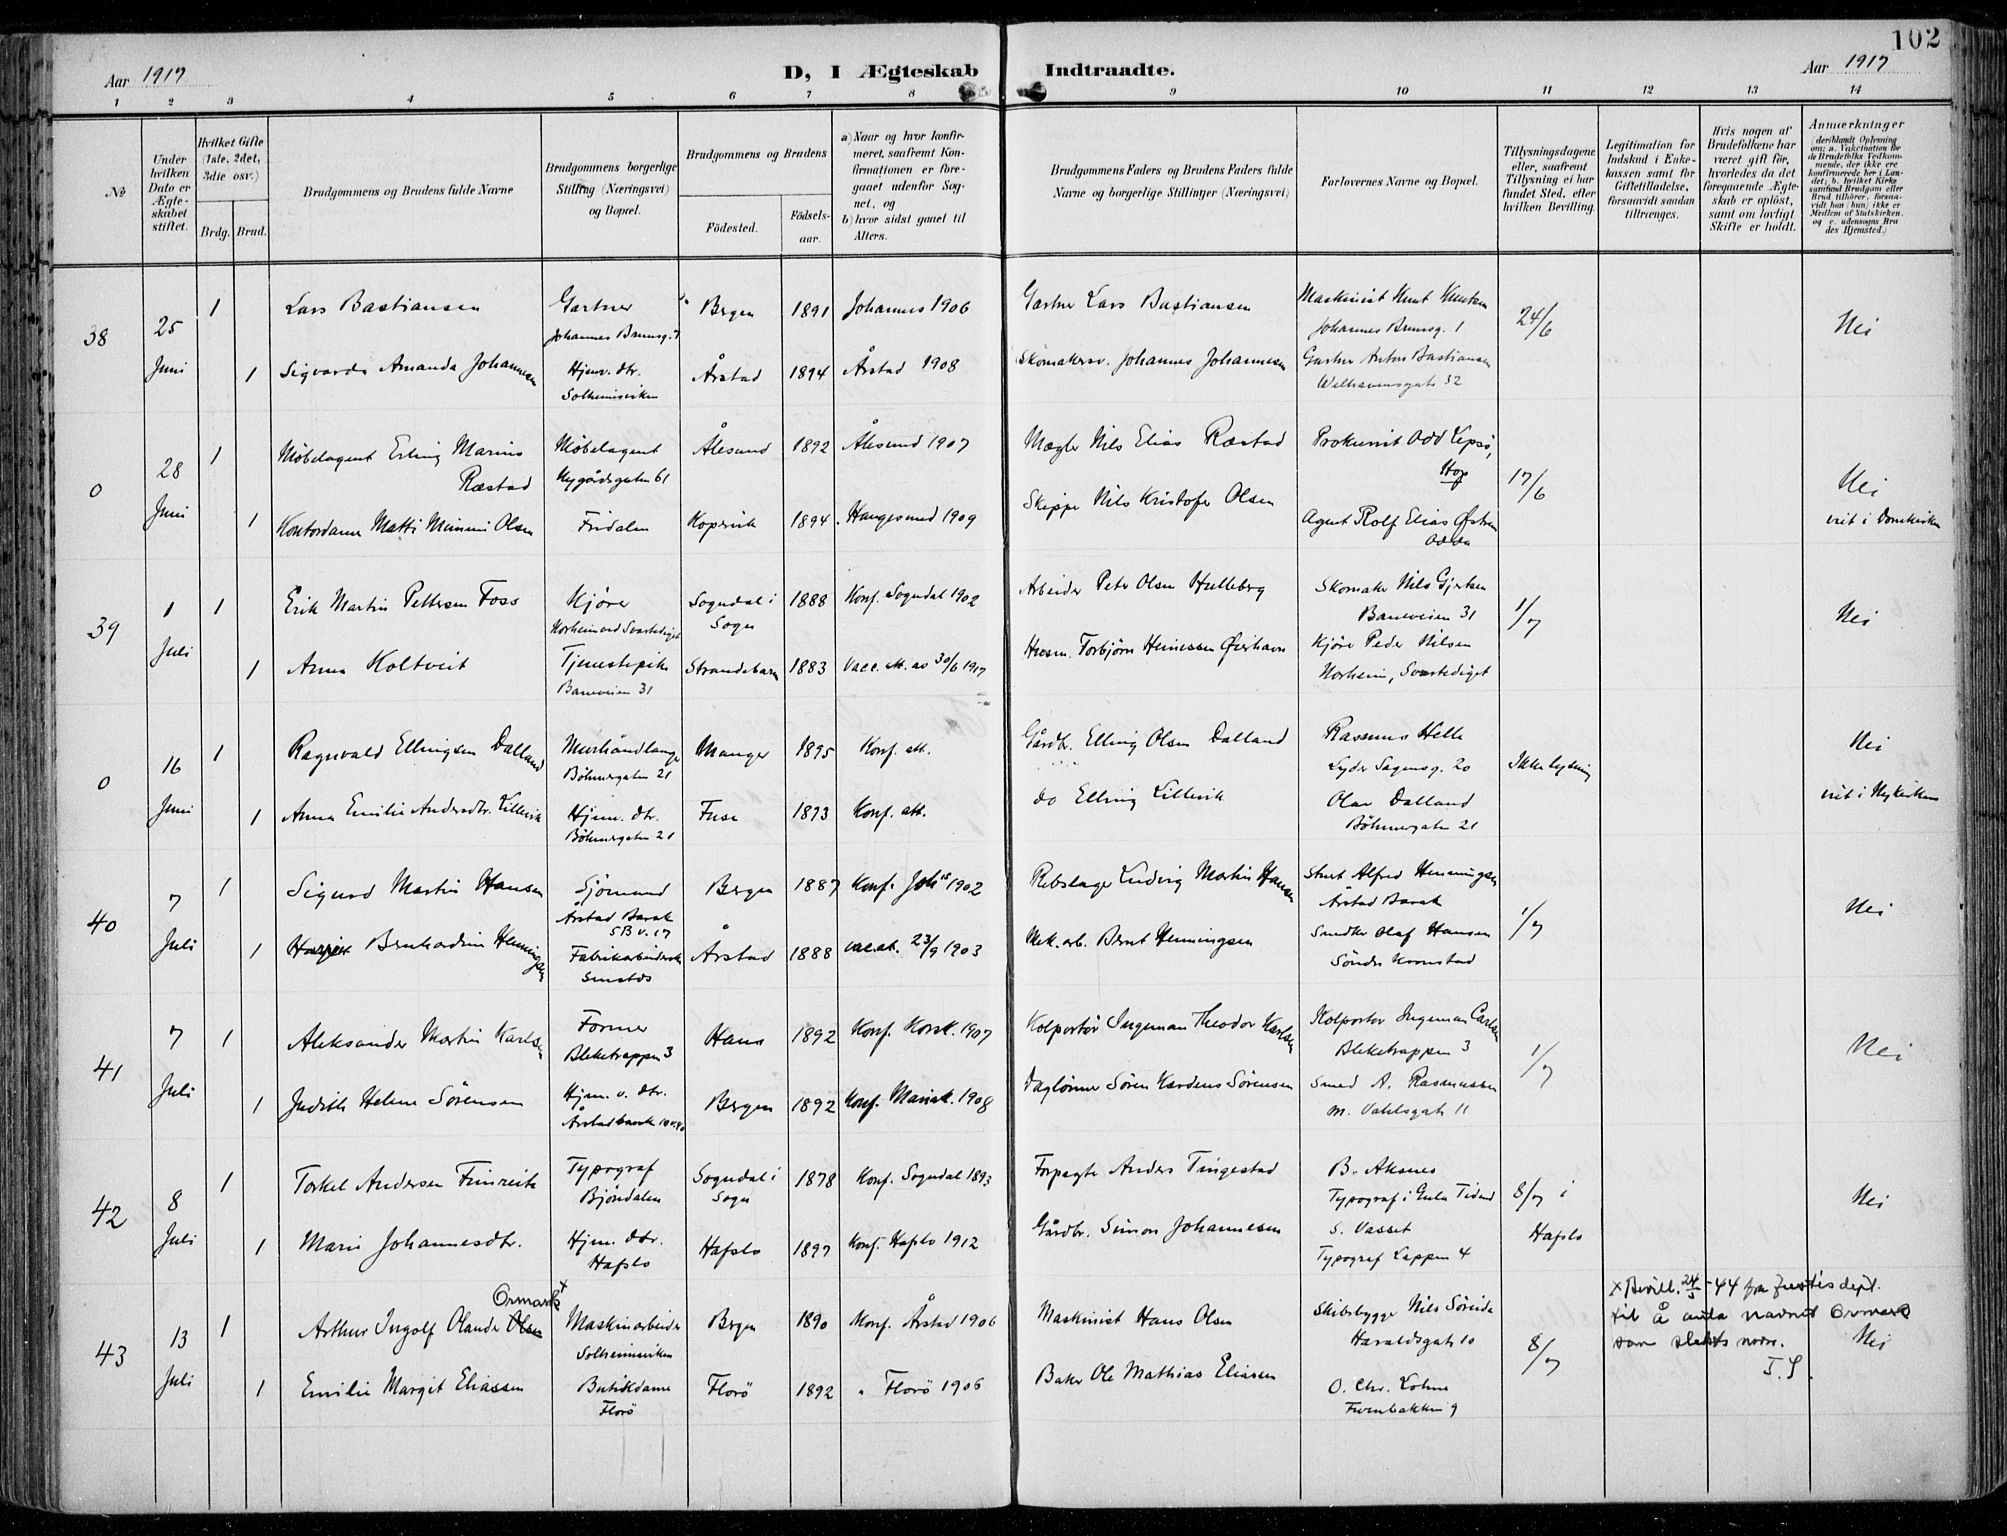 102
Aar 1917
D, I Ægteskab Indtraadte.
Aar 1917
1 2 3 4 5 6 7 8 9 10 11 12 13 14
No
Under hvilken Dato er Ægteskabet stiftet.
Hvilket Gifte (1ste, 2det, 3die osv.)
Brdg. Brud.
Brudgommens og Brudens fulde Navne
Brudgommens borgerlige Stilling (Næringsvei) og Bopæl.
Brudgommens og Brudens
Fødested. Fødselsaar.
a) Naar og hvor konfirmeret, saafremt Konfirmationen er foregaaet udenfor Sognet, og
b) hvor sidst gaaet til Alters.
Brudgommens Faders og Brudens Faders fulde Navne og borgerlige Stillinger (Næringsvei)
Forlovernes Navne og Bopæl.
Tillysningsdagene eller, saafremt Tillysning ei har fundet Sted, efter hvilken Bevilling.
Legitimation for Indskud i Enkekassen samt for Giftetilladelse, forsaavidt saadan tiltrænges.
Hvis nogen af Brudefolkene har været gift før, hvorledes da det foregaaende Ægteskab er opløst, samt om lovligt Skifte er holdt.
Anmærkninger (deriblandt Oplysning om: a. Vaccination for de Brudefolks Vedkommende, der ikke ere konfirmerede her i Landet; b. hvilket Kirkesamfund Brudgom eller Brud tilhører, forsaavidt han (hun) ikke er Medlem af Statskirken, og c. udensogns Brudes Hjemsted.)
38 25 Juni 1 Lars Bastiansen Gartner Johannes Brunsg. Bergen 1891 Johannes 1906 Gartner Lars Bastiansen Maskinist Knut Knutsen Johannes Brunsg. 1 24/6 Nei
1 Sigvarda Amanda Johannesen Hjemv. dtr. Solheimsviken Årstad 1894 Årstad 1908 Skomakersv. Johannes Johannesen Gartner Anton Bastiansen Welhavensgate 32
0 28 Juni 1 Møbelagent Erling Marius Ræstad Møbelagent Nygårdsgaten 61 Ålesund 1892 Ålesund 1907 Mægler Nils Elias Ræstad Prokurist Odd Lepsø, Hop 17/6 Nei
1 Kontordame Matti Mimmi Olsen Fridalen Kopervik 1894 Haugesund 1909 Skipper Nils Kristofer Olsen Agent Rolf Elias Østrem Odda viet i Domkirken
39 1 Juli 1 Erik Martin Pettersen Foss Kjører Norheim ved Svartediget Sogndal i Sogn 1888 Konf. Sogndal 1902 Arbeider Peter Olsen Hulleberg Skomaker Nils Gjertsen Baneveien 31 1/7 Nei
1 Anna Holtveit Tjenestepike Baneveien 31 Strandebarm 1883 Vacc. At. av 30/6 1917 Husm. Torbjørn Heinessen Øierhavn Kjører Peder Nilsen Norheim, Svartediget
0 16 Juni 1 Ragnvald Ellingsen Dalland Murhåndlanger Böhmergaten 21 Manger 1895 Konf. att. Gårdbr. Elling Olsen Dalland Rasmus Helle Lyder Sagensg. 20 Ikke lysning Nei
1 Anna Emilie Andersdtr. Lillevik Hjem. dtr. Böhmergaten 21 Fuse 1893 Konf. att. do Elling Lillevik Olav Dalland Böhmergaten 21 viet i Nykirken
40 7 Juli 1 Sigurd Martin Hansen Sjömand Årstad Barak 5B v. 17 Bergen 1887 Konf. Johs 1902 Rebslager Ludvig Martin Hansen Stuert Alfred Henningsen Årstad Barak 1/7 Nei
1 Bernhardine Henningsen Fabrikarbeiderske Årstad 1888 vac.at. 23/9 1903 Mek. arb. Bernt Henningsen Snedker Olaf Hansen Söndre Kronstad
41 7 Juli 1 Aleksander Martin Karlsen Former Bleketrappen 3 Haus 1892 Konf. Korsk. 1907 Kolportör Ingeman Theodor Karlsen Kolportør Ingeman Carlsen Bleketrappen 3 1/7 Nei
1 Judith Helene Sörensen Hjem. v. dtr. Årstad barak Bergen 1892 Konf. Mariak. 1908 Daglönner Sören Kardens Sörensen Smed A. Rasmussen M. Vahlsgate 11
42 8 Juli 1 Torkel Andersen Fimreite Typograf Bjöndalen Sogndal i Sogn 1878 Konf. Sogndal 1893 Forpagter Anders Tingestad B. Aksnes Typograf i Gula Tidend 8/7 i Hafslo Nei
1 Marie Johannesdtr. Hjem. dtr. Hafslo Hafslo 1897 Konf. Hafslo 1912 Gårdbr. Simon Johannesen S. Vasset Typograf Lappen 4
43 13 Juli 1 Arthur Ingolf Olande Olsen Ormark x Maskinarbeider Solheimsviken Bergen 1890 Konf. Årstad 1906 Maskinist Hans Olsen Skibsbygger Nils Söreide Haraldsgate 10 8/7 Nei
x Bevill. 24/3-44 fra Justisdept. til å anta navnet Ormark som slekts navn. I. S.
1 Emilie Margit Eliassen Butikdame Florö Florö 1892 " Florö 1906 Baker Ole Mathias Eliasen O. Chr. Lohne 9